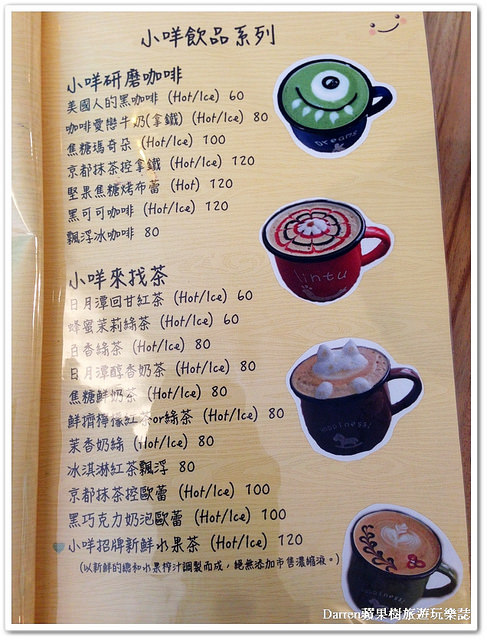 小咩飲品系列
小咩研磨咖啡
美國人的黑咖啡 (Hot/Ice) 60
咖啡愛戀牛奶(拿鐵) (Hot/Ice) 80
焦糖瑪奇朵 (Hot/Ice) 100
京都抹茶控拿鐵 (Hot/Ice) 120
堅果焦糖烤布蕾 (Hot) 120
黑可可咖啡 (Hot/Ice) 120
飄浮冰咖啡 80
小咩來找茶
日月潭回甘紅茶 (Hot/Ice) 60
蜂蜜茉莉綠茶 (Hot/Ice) 60
百香綠茶 (Hot/Ice) 80
日月潭醇香奶茶 (Hot/Ice) 80
焦糖鮮奶茶 (Hot/Ice) 80
鮮擠檸檬紅茶or綠茶 (Hot/Ice) 80
茉香奶綠 (Hot/Ice) 80
冰淇淋紅茶飄浮 80
京都抹茶控歐蕾 (Hot/Ice) 100
黑巧克力奶泡歐蕾 (Hot/Ice) 100
小咩招牌新鮮水果茶 (Hot/Ice) 120
(以新鮮的糖和水果榨汁調製而成，絕無添加市售濃縮液。)
dreams
lintu
happiness
Darren蘋果樹旅遊玩樂誌